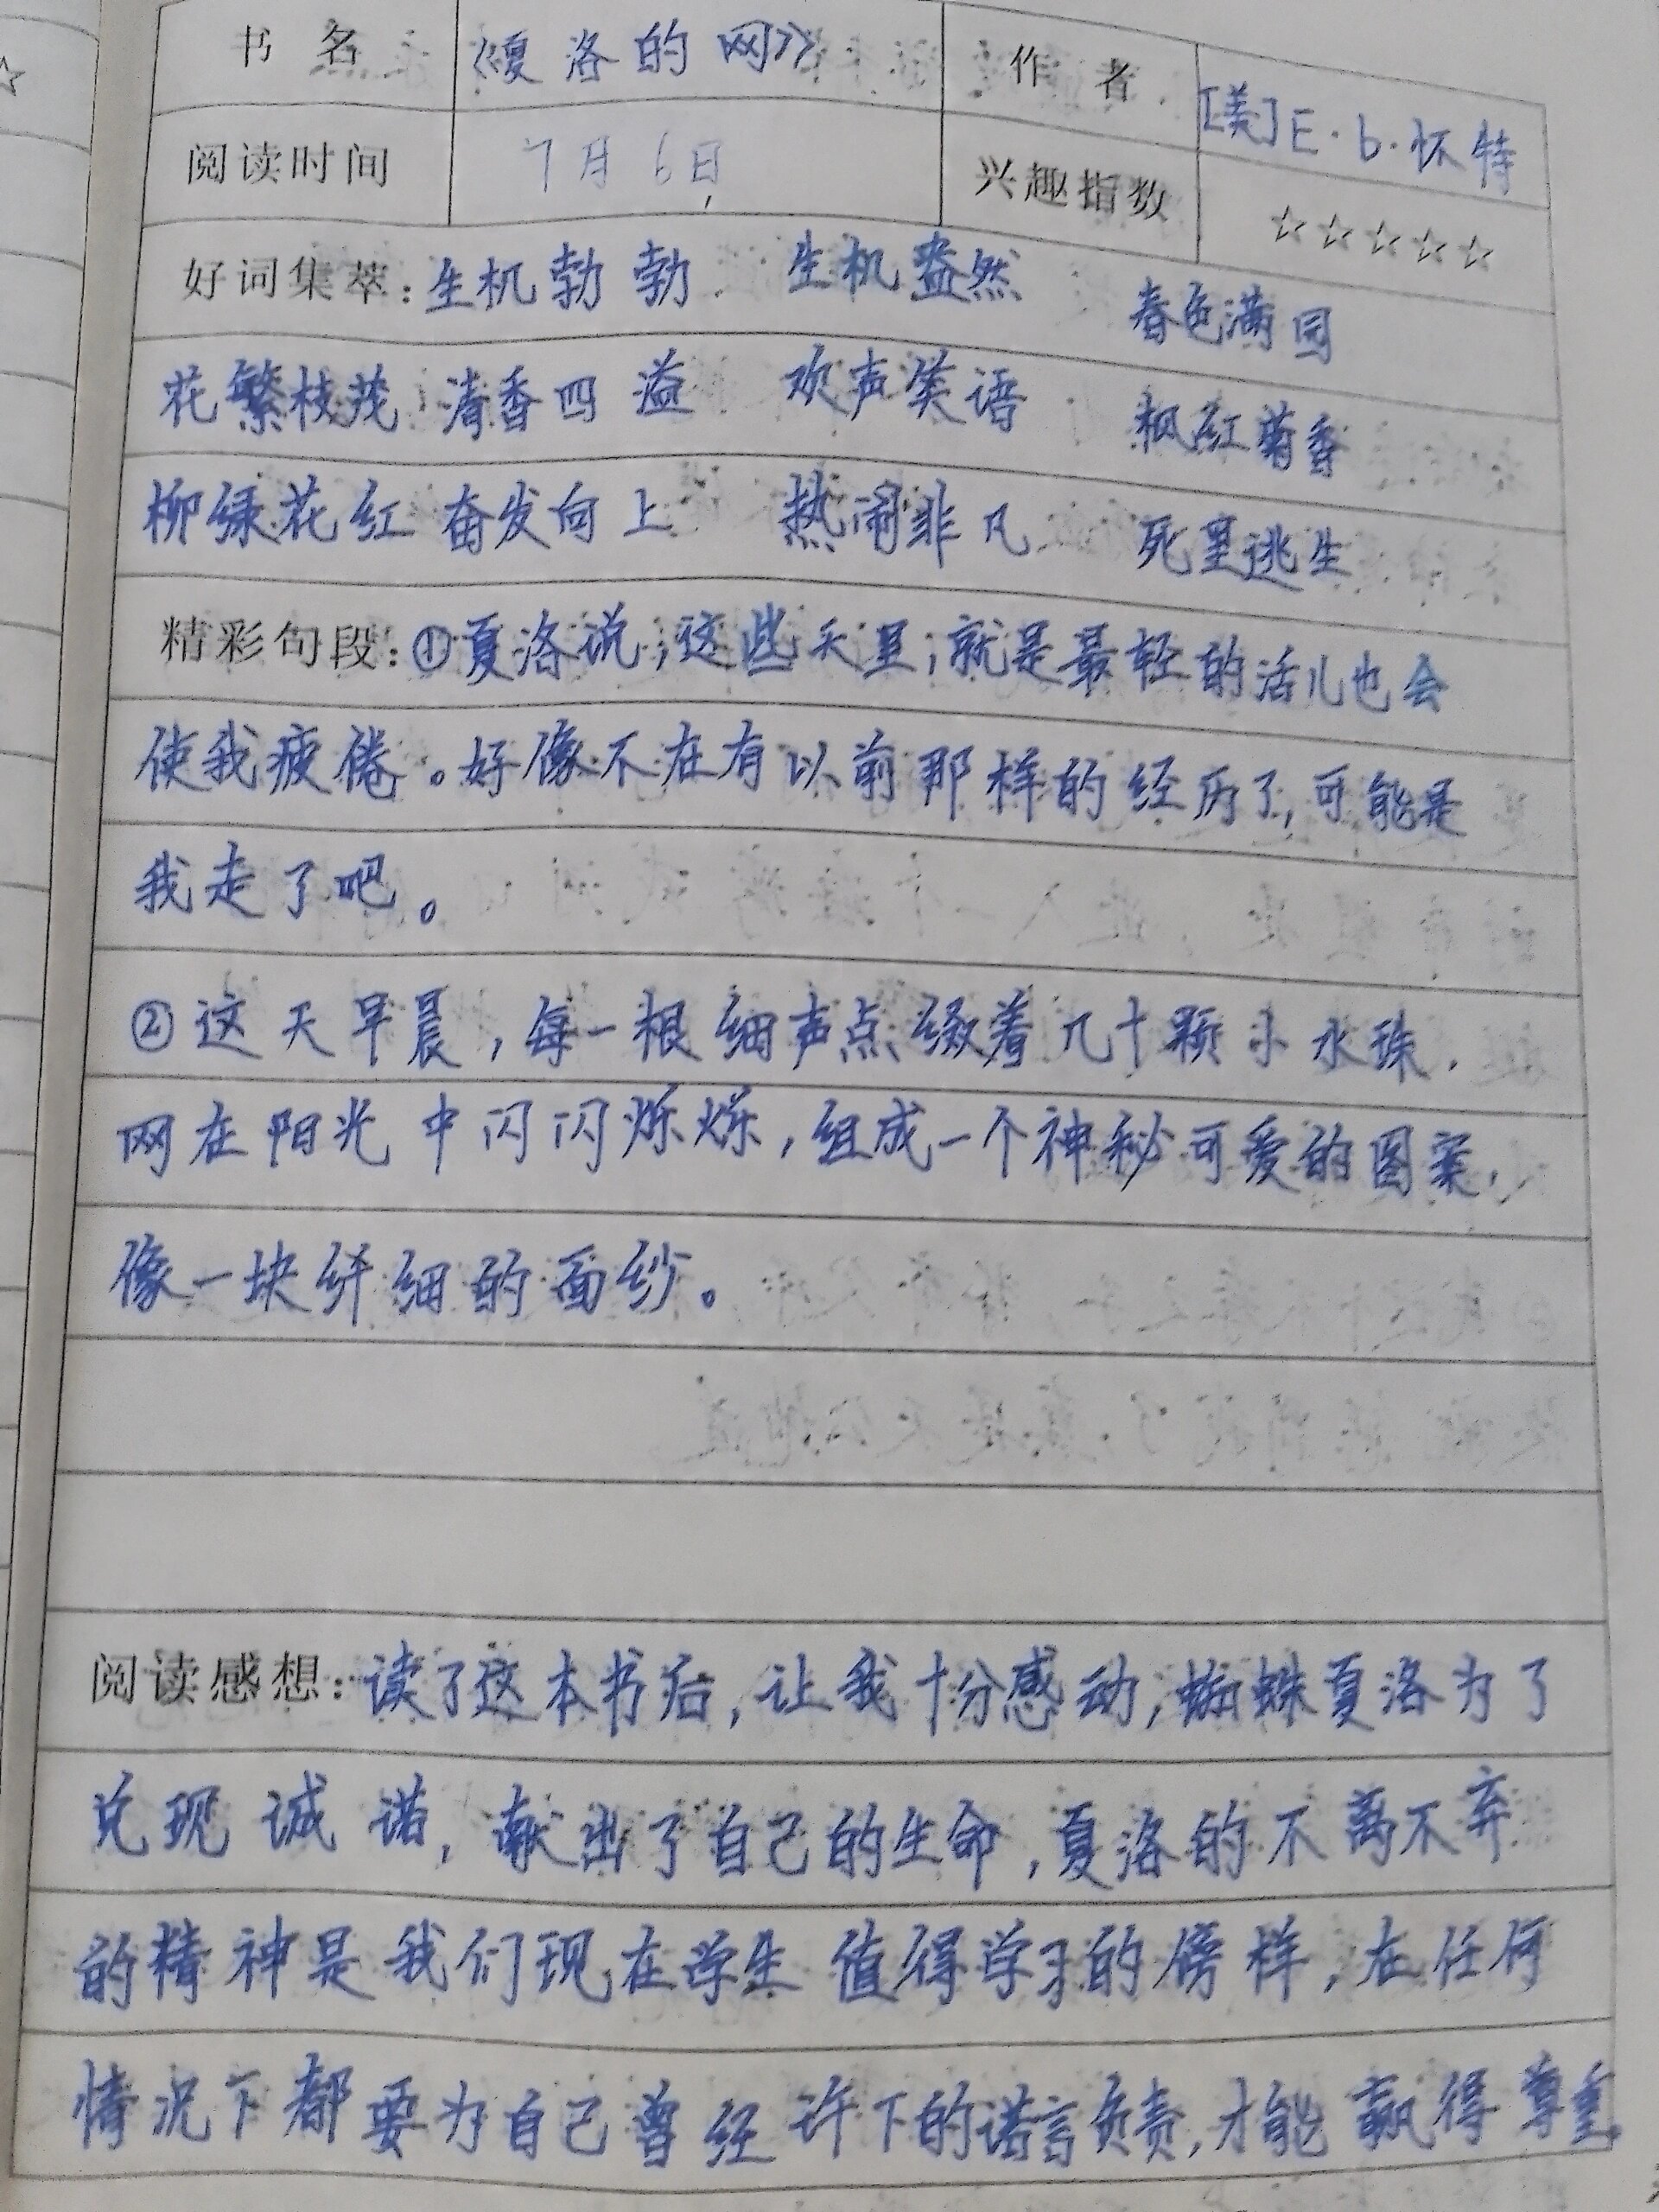 书名 《夏洛的网》 作者 [美]E·b·怀特
阅读时间 7月6日 兴趣指数 ☆☆☆☆☆
好词集萃：生机勃勃 生机盎然 春色满园
花繁枝茂 清香四溢 欢声笑语 枫红菊香
柳绿花红 奋发向上 热闹非凡 死里逃生
精彩句段：①夏洛说，这些天里，就是最轻的活儿也会
使我疲倦。好像不在有以前那样的经历了，可能是
我走了吧。
②这天早晨，每一根细声点缀着几十颗小水珠.
网在阳光中闪闪烁烁，组成一个神秘可爱的图案，
像一块纤细的面纱。
阅读感想：读了这本书后，让我十分感动，蜘蛛夏洛为了
兑现诚诺，献出了自己的生命，夏洛的不离不弃
的精神是我们现在学生值得学习的傍样，在任何
情况下都要为自己曾经许下的诺言负责，才能赢得尊重。